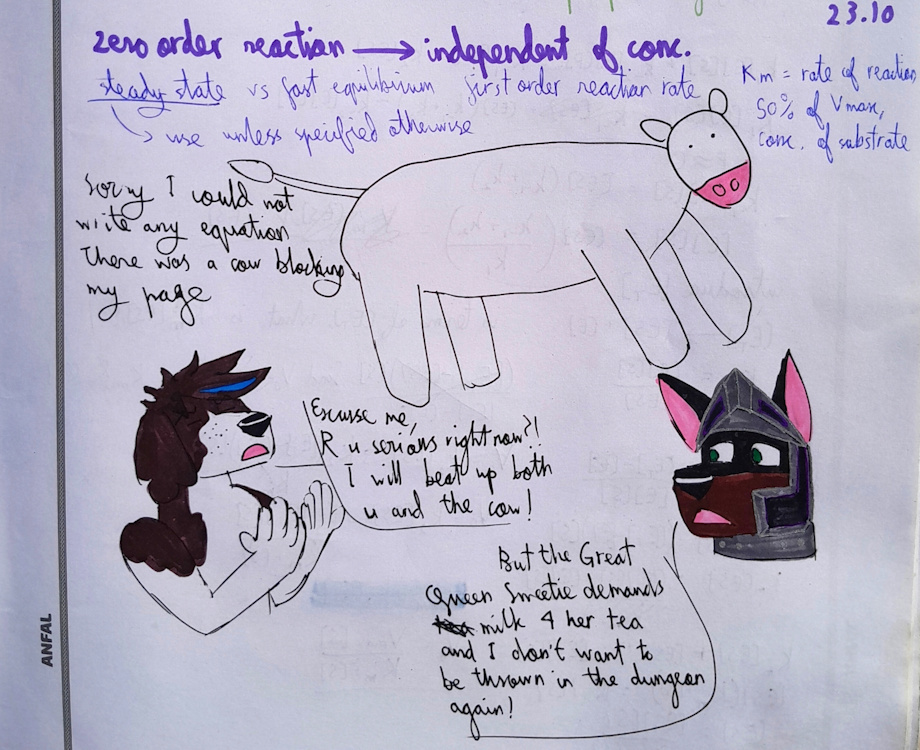 23.10
zero order reaction → independent of conc.
steady state vs fast equilibrium first order reaction rate
use unless specified otherwise
Km = rate of reaction
50% of Vmax,
conc. of substrate
Sorry I could not
write any equation
There was a cow blocking
my page
Excuse me,
R u serious right now?!
I will beat up both
u and the cow!
But the Great
Queen Sweetie demands
milk 4 her tea
and I don't want to
be thrown in the dungeon
again!
ANFAL